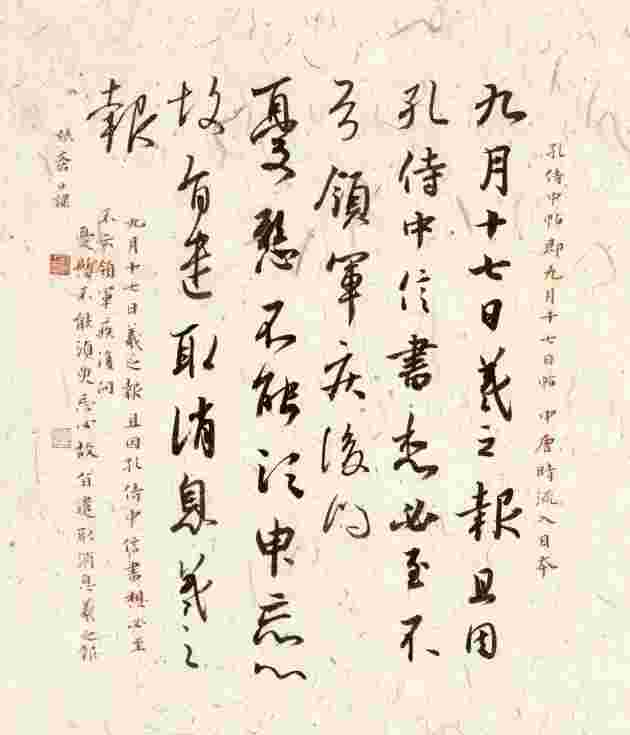 孔侍中帖即九月十七日帖中唐時流入日本
九月十七日羲之報且因
孔侍中信書想必至不
領軍疾後問
憂懸不能須臾忘心
故旨遣取消息羲之
報
九月十七日羲之報且因孔侍中信書想必至
不云領軍疾後問
憂懸不能須臾忘心故旨遣取消息羲之報
日課